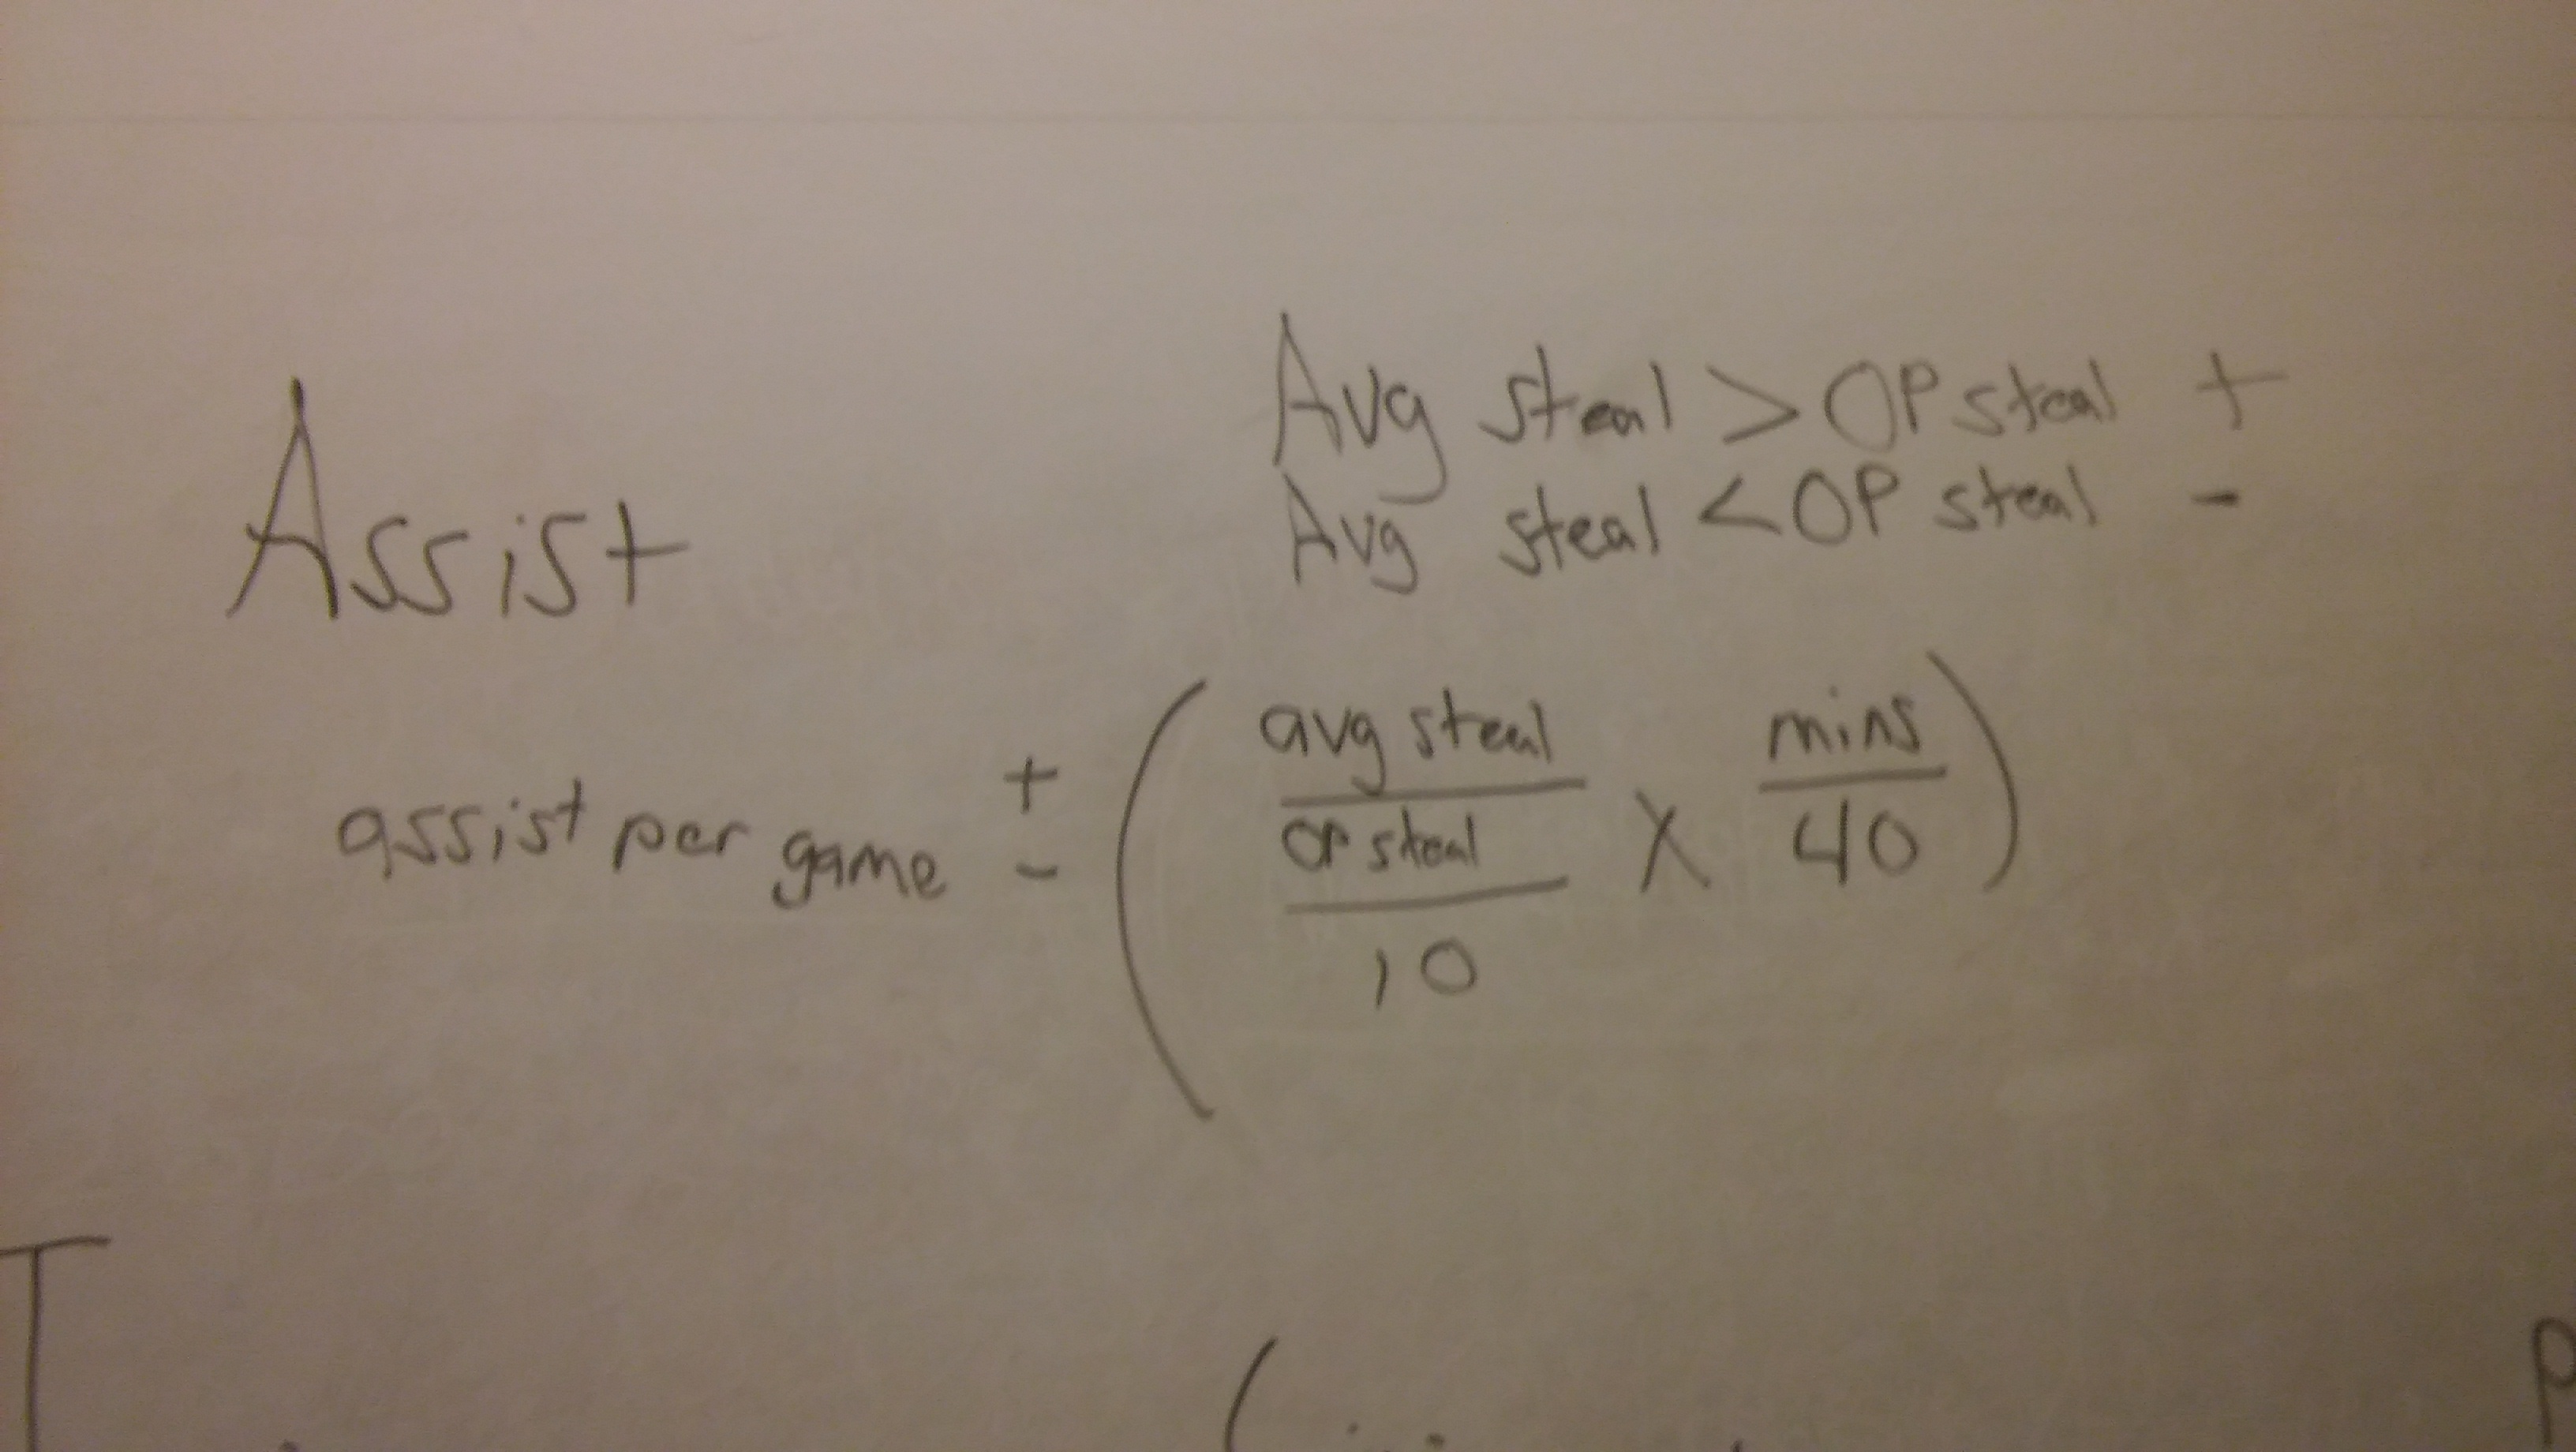 Avg steal > OP steal +
Avg steal < OP steal -
Assist
assist per game + - ( avg steal / OP steal / 10 X mins / 40 )
T
(
P